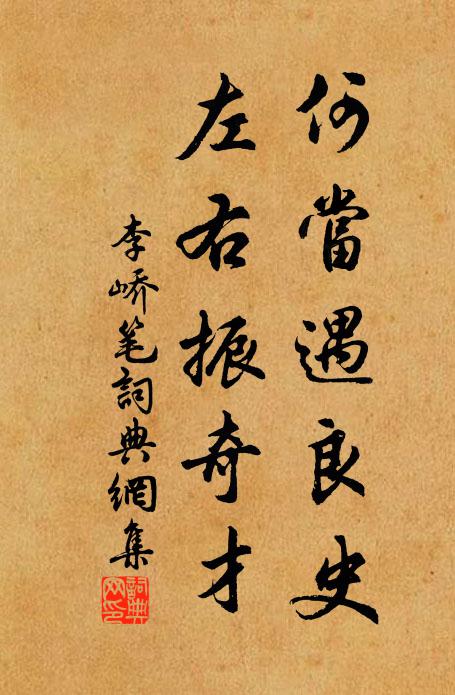 何當遇良史
左右振奇才
李嶠笔詞典網集
詞典网印